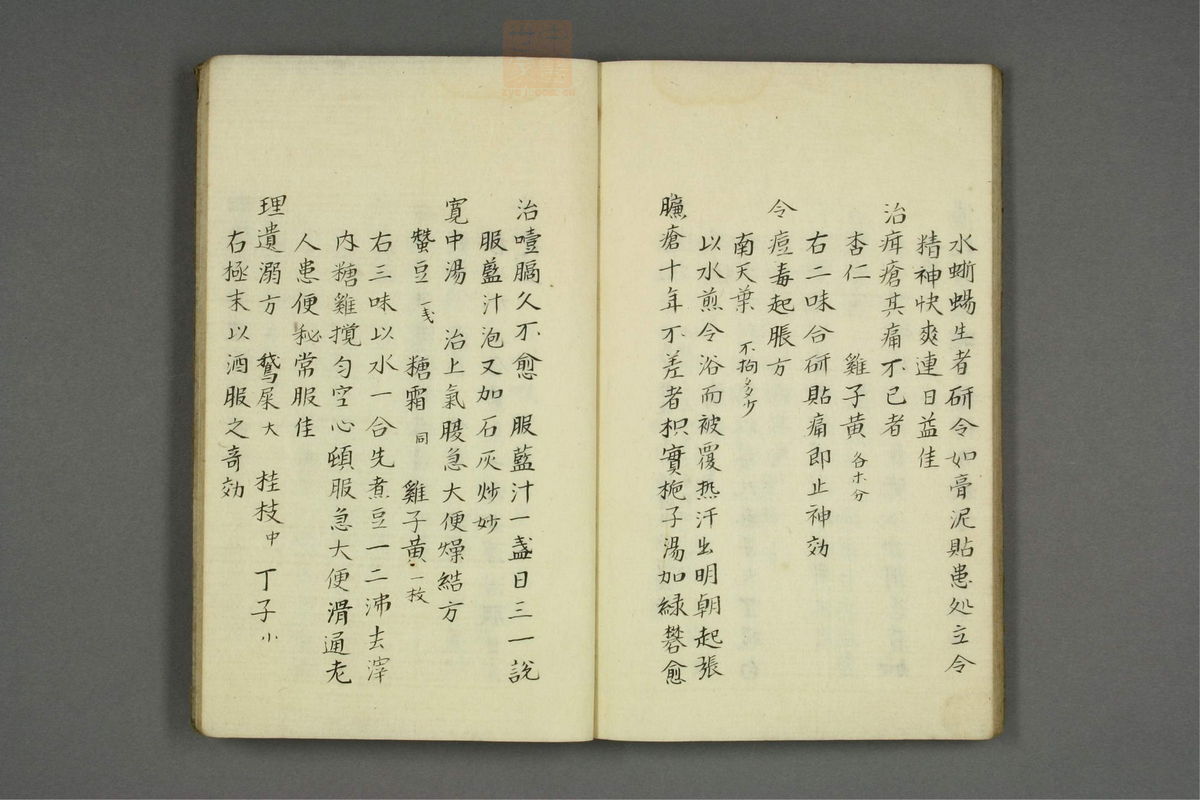 水蜥蜴生者研令如膏泥貼患処立令
精神快爽連日益佳
治疳瘡其痛不已者
杏仁 雞子黄 各等分
右二味合研貼痛即止神効
令痘毒起脹方
南天葉 不拘多少
以水煎令浴而被覆热汗出明朝起張
臁瘡十年不差者枳實梔子湯加緑礬愈
治噎膈久不愈 服藍汁一盏日三一說
服藍汁泡又加石灰炒妙
寛中湯 治上氣腹急大便燥結方
豆 一戋 糖霜 同 雞子黄 一枚
右三味以水一合先煮豆一二沸去滓
内糖雞搅匀空心頓服急大便滑通老
人患便秘常服佳
理遺溺方 鵞屎 大 桂枝 中 丁子 小
右極末以酒服之奇効